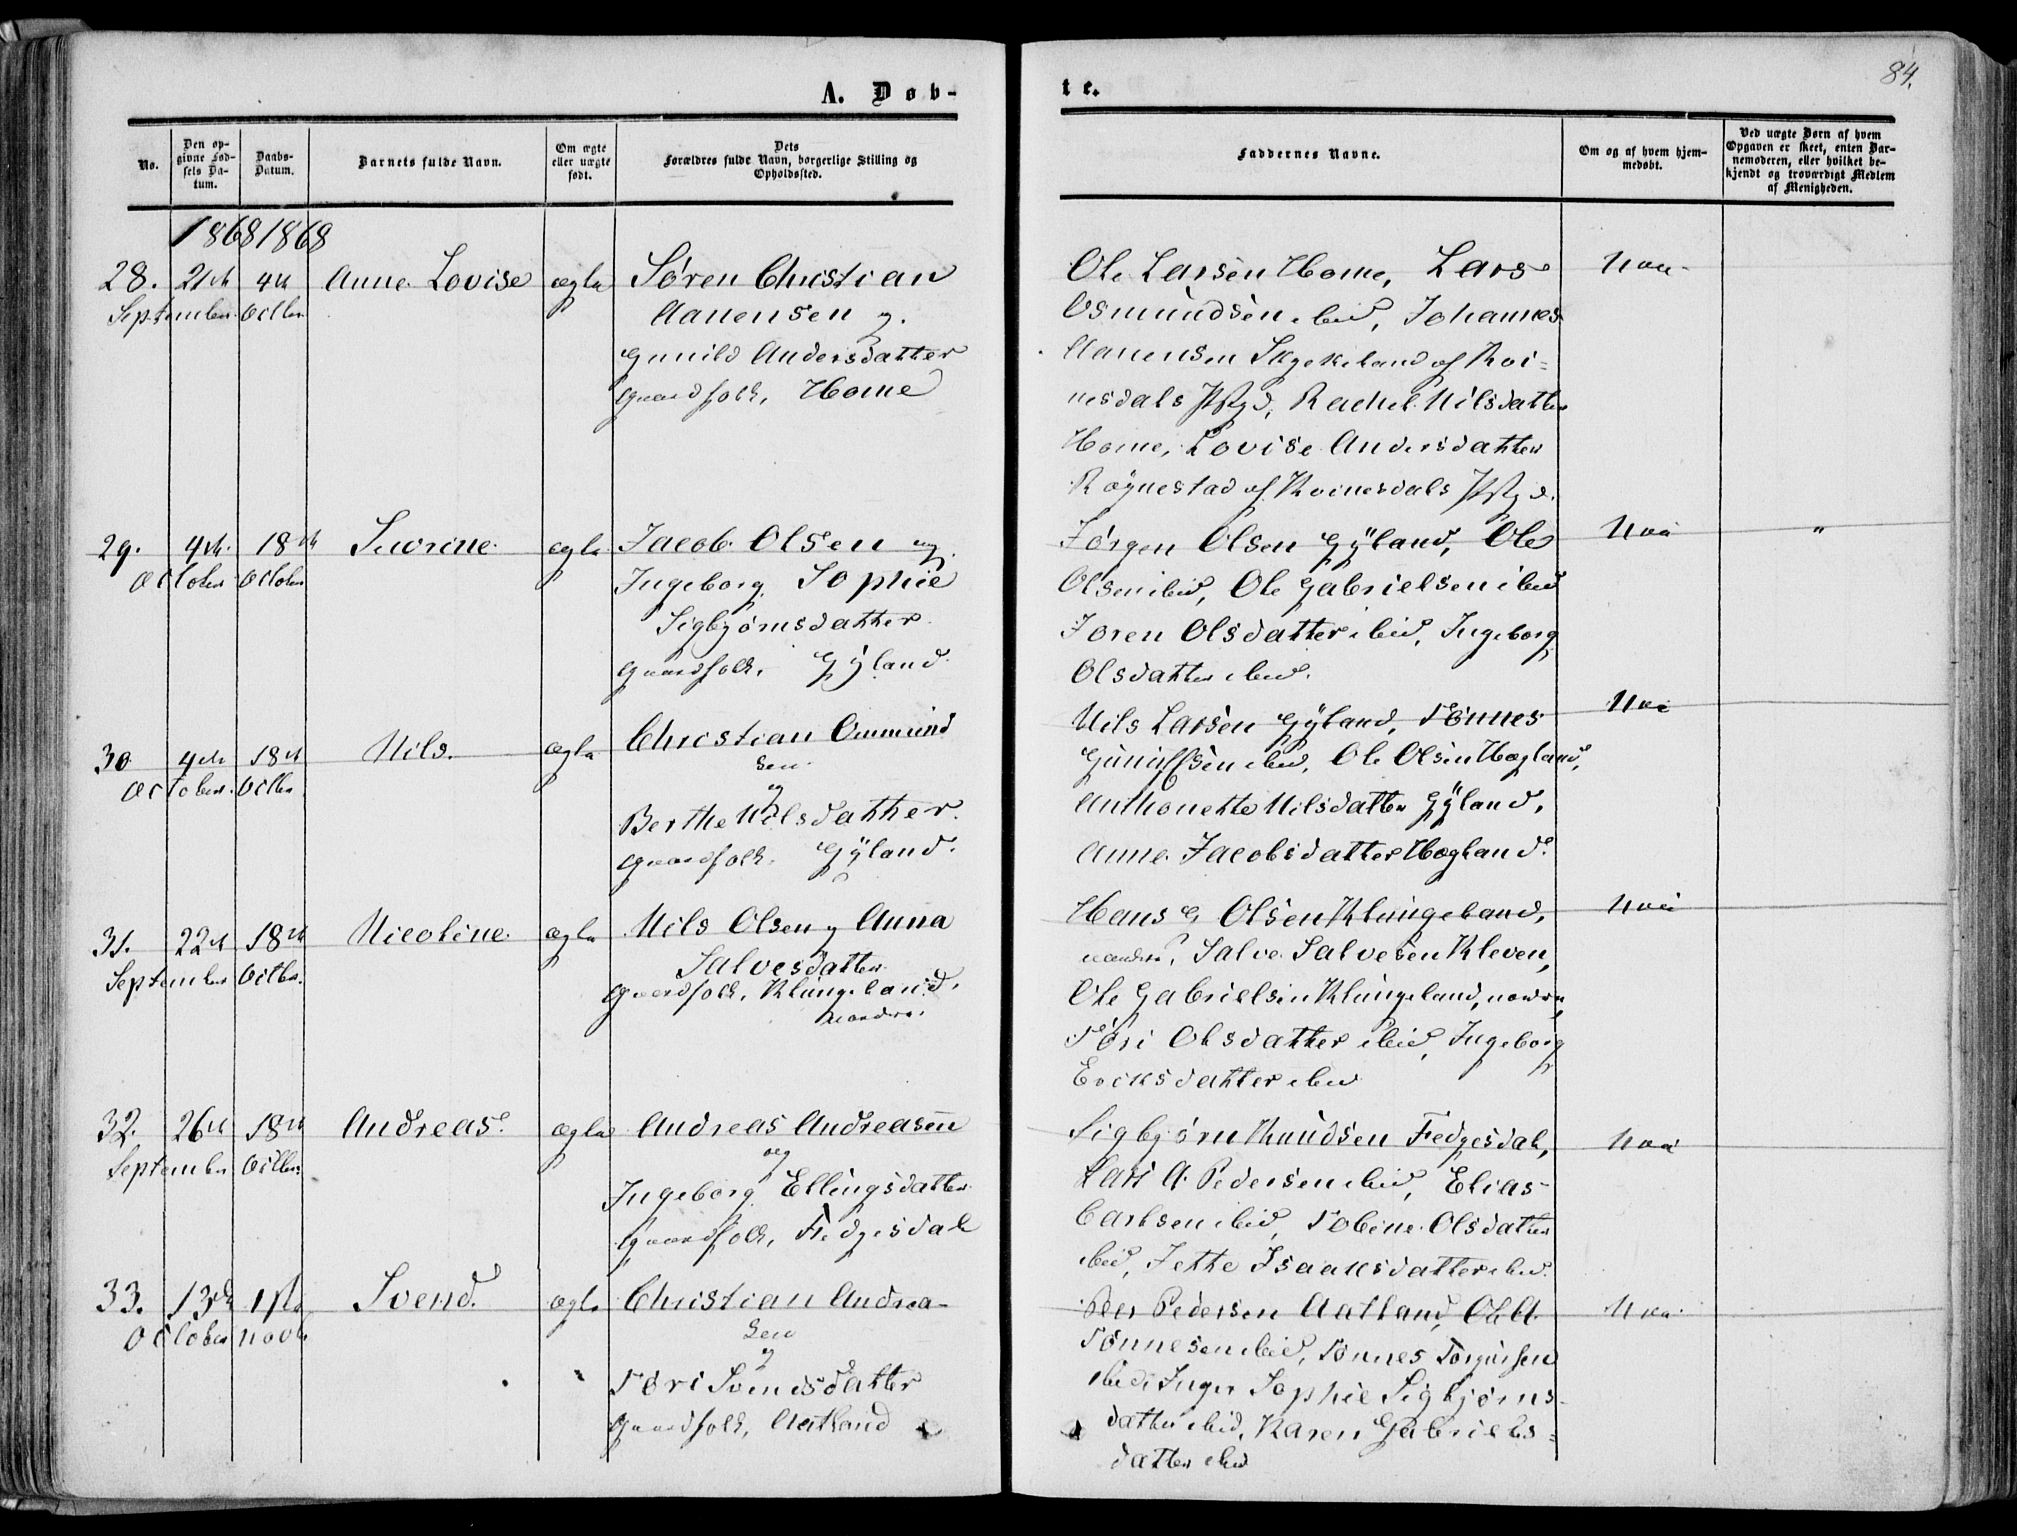 84.
A. Døb-
te.
No.
Den opgivne Fødsels Datum.
Daabs-Datum.
Barnets fulde Navn.
Om ægte eller uægte født.
Dets Forældres fulde Navn, borgerlige Stilling og Opholdssted.
Faddernes Navne.
Om og af hvem hjemmedøbt.
Ved uægte Børn af hvem Opgaven er skeet, enten Barnemoderen, eller hvilket bekjendt og troværdigt Medlem af Menigheden.
1868 1868
28. 21de 4de Anne Lovise ægte Søren Christian
September Octbr. Aanensen og
Gunild Andersdatter
Gaardfolk, Home
Ole Larsen Home, Lars
Osmundsen ibid, Johannes
Aanensen af
Prgd, Rachel Nilsdatter
Home, Lovise Andersdatter
Røynestad af Prgd.
29. 4de 18de Severine ægte Jacob Olsen og
October October Ingeborg Sophie
Sigbjørnsdatter
Gaardfolk, Gÿland
Jørgen Olsen Gÿland, Ole
Olsen ibid, Ole Gabrielsen ibid
Joren Olsdatter ibid, Ingeborg
Olsdatter ibid.
"
30 4de 18de Nils. ægte Christian Ommund
October Octbr. sen
og
Berthe Nilsdatter
Gaardfolk. Gÿland.
Nils Larsen Gÿland, Tønnes
ibid, Ole Olsen Hogland,
Anthonette Nilsdatter Gÿland,
Anne Jacobsdatter Hogland.
31. 22de 18de Nicoline ægte Nils Olsen og Anna
September Octbr. Salvesdatter
Gaardfolk, Klungeland,
nordre.
Hans G Olsen Klungeland,
nordre, Salve Salvesen Kleven,
Ole Gabrielsen Klungeland, nordre,
Tøri Olsdatter ibid, Ingeborg
Ericksdatter ibid
32. 26de 18de Andreas. ægte Andreas Andreasen
September Octbr. og
Ingeborg Ellingsdatter
Gaardfolk, Fedgesdal
Sigbjørn Knudsen Fedgesdal,
Lars A. Pedersen ibid, Elias
Carlsen ibid, Tobine Olsdatter
ibid, Jette Isaaksdatter ibid.
33. 13de 1ste Svend. ægte Christian Andrea-
October Novbr sen
og
Tøri Svendsdatter
Gaardfolk, Aatland
Peer Pedersen Aatland, Ole A.
Tønnesen ibid, Tønnes Torgiersen
ibid, Inger Sophie Sigbjørns-
datter ibid, Karen Gabriels=
datter ibid